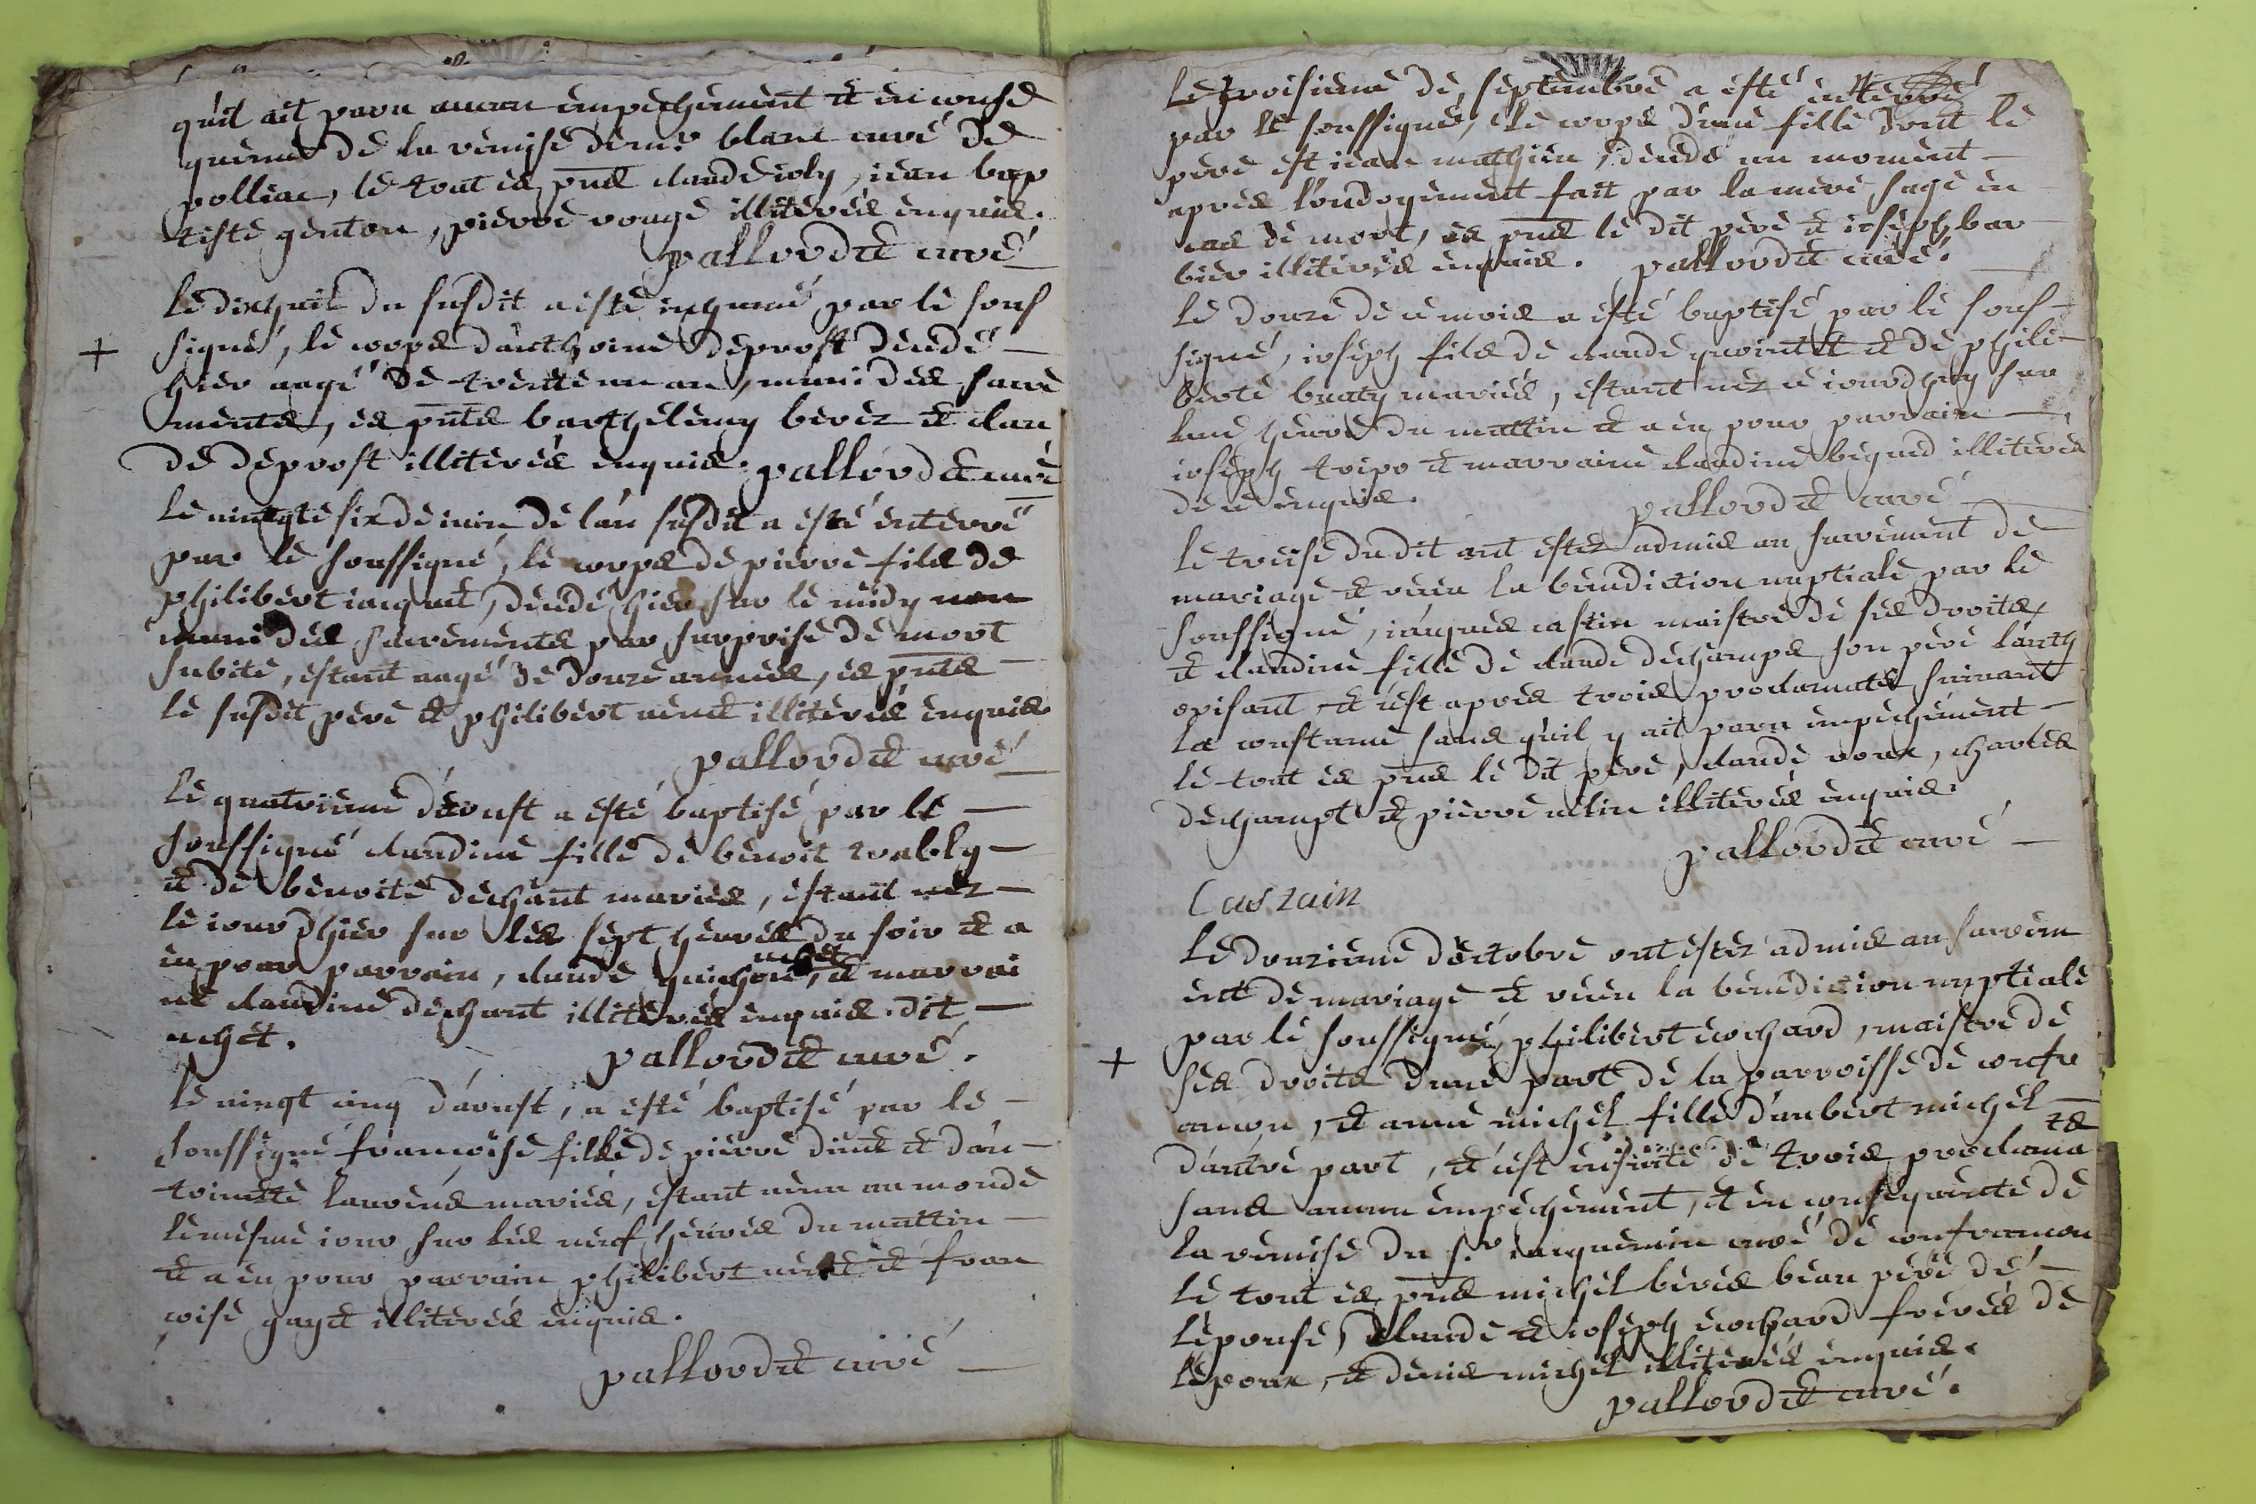 quil ait paru aucun empechement et en conse
quence de la remise de mr blanc curé de
polliac, le tout es pnts claude ioly, iean bap
tiste genton, pierre rouge illiterés enquis.
pallordet curé
le dixhuit du susdit a esté inhumé par le sous
signé, le corps d'anthoine deprost decedé
hier aagé de trente un an, muni des sacre
ments, es pnts barthelemy berez et clau
de deprost illiterés enquis. pallordet curé
le vingte six de iuin de l'an susdit a esté enterré
par le soussigné, le corps de pierre fils de
philibert iaquet, decedé hier sur le midy non
muni des sacrements par surprise de mort
subite, estant aagé de douze années, es pnts
le susdit pere et philibert illiterés enquis
pallordet curé
le quatrieme d'aoust a esté baptisé par le
soussigné claudine fille de benoit
et de benoite dechant mariés, estant nez
le iour d'hier sur les sept heures du soir et a
eu pour parrain, claude et marrai
ne claudine dechant illiterés enquis. dit
uchet.
pallordet curé.
le vingt cinq d'aoust, a esté baptisé par le
soussigné françoise fille de pierre et d'an
toinette laurens mariés, estant venu au monde
le mesme iour sur les neuf heures du mattin
et a eu pour parrain philibert et fran
coise gayet illiterés enquis.
pallordet curé
le troisieme de septembre a esté enterré
par le soussigné, le corps d'une fille dont le
pere est iean mathieu, decedé un moment
apres l'ondoyement fait par la mere sage en
cas de mort, es pnts le dit pere et ioseph bar
bier illiterés enquis. pallordet curé.
le douze de ce mois a esté baptisé par le sous
signé, ioseph fils de claude et de phili
berte buaty mariés, estant nez ce iourdhuy sur
une heure du mattin et a eu pour parrain
ioseph tripo et marraine claudine illiterés
de ce enquis. pallordet curé
le treise du dit ont estez admis au sacrement de
mariage et receu la benediction nuptiale par le
soussigné, iaques castin maistre de ses droits,
et claudine fille de claude dechamps son pere l'auth
orisant, et c'est apres trois proclamats suivant
la coustume sans quil y ait paru empechement
le tout es pnts le dit pere, claude roux, charles
dechampt et pierre illiterés enquis.
pallordet curé
Castain
le douzieme d'octobre ont estez admis au sacrem
ent de mariage et receu la benediction nuptiale
par le soussigné, philibert cochard, maistre de
ses droits d'une part de la parroisse de confr
ancon, et anne michel fille d'aubert michel
d'autre part, et c'est ensuitte de trois proclama ts
sans aucun empechement, et en consequente de
la remise du sr iaquemin curé de confrancon
le tout es pnts michel berés beau pere de
l'epouse, claude et ioseph cochard freres de
l'epoux, et denis michel illiterés enquis.
pallordet curé.